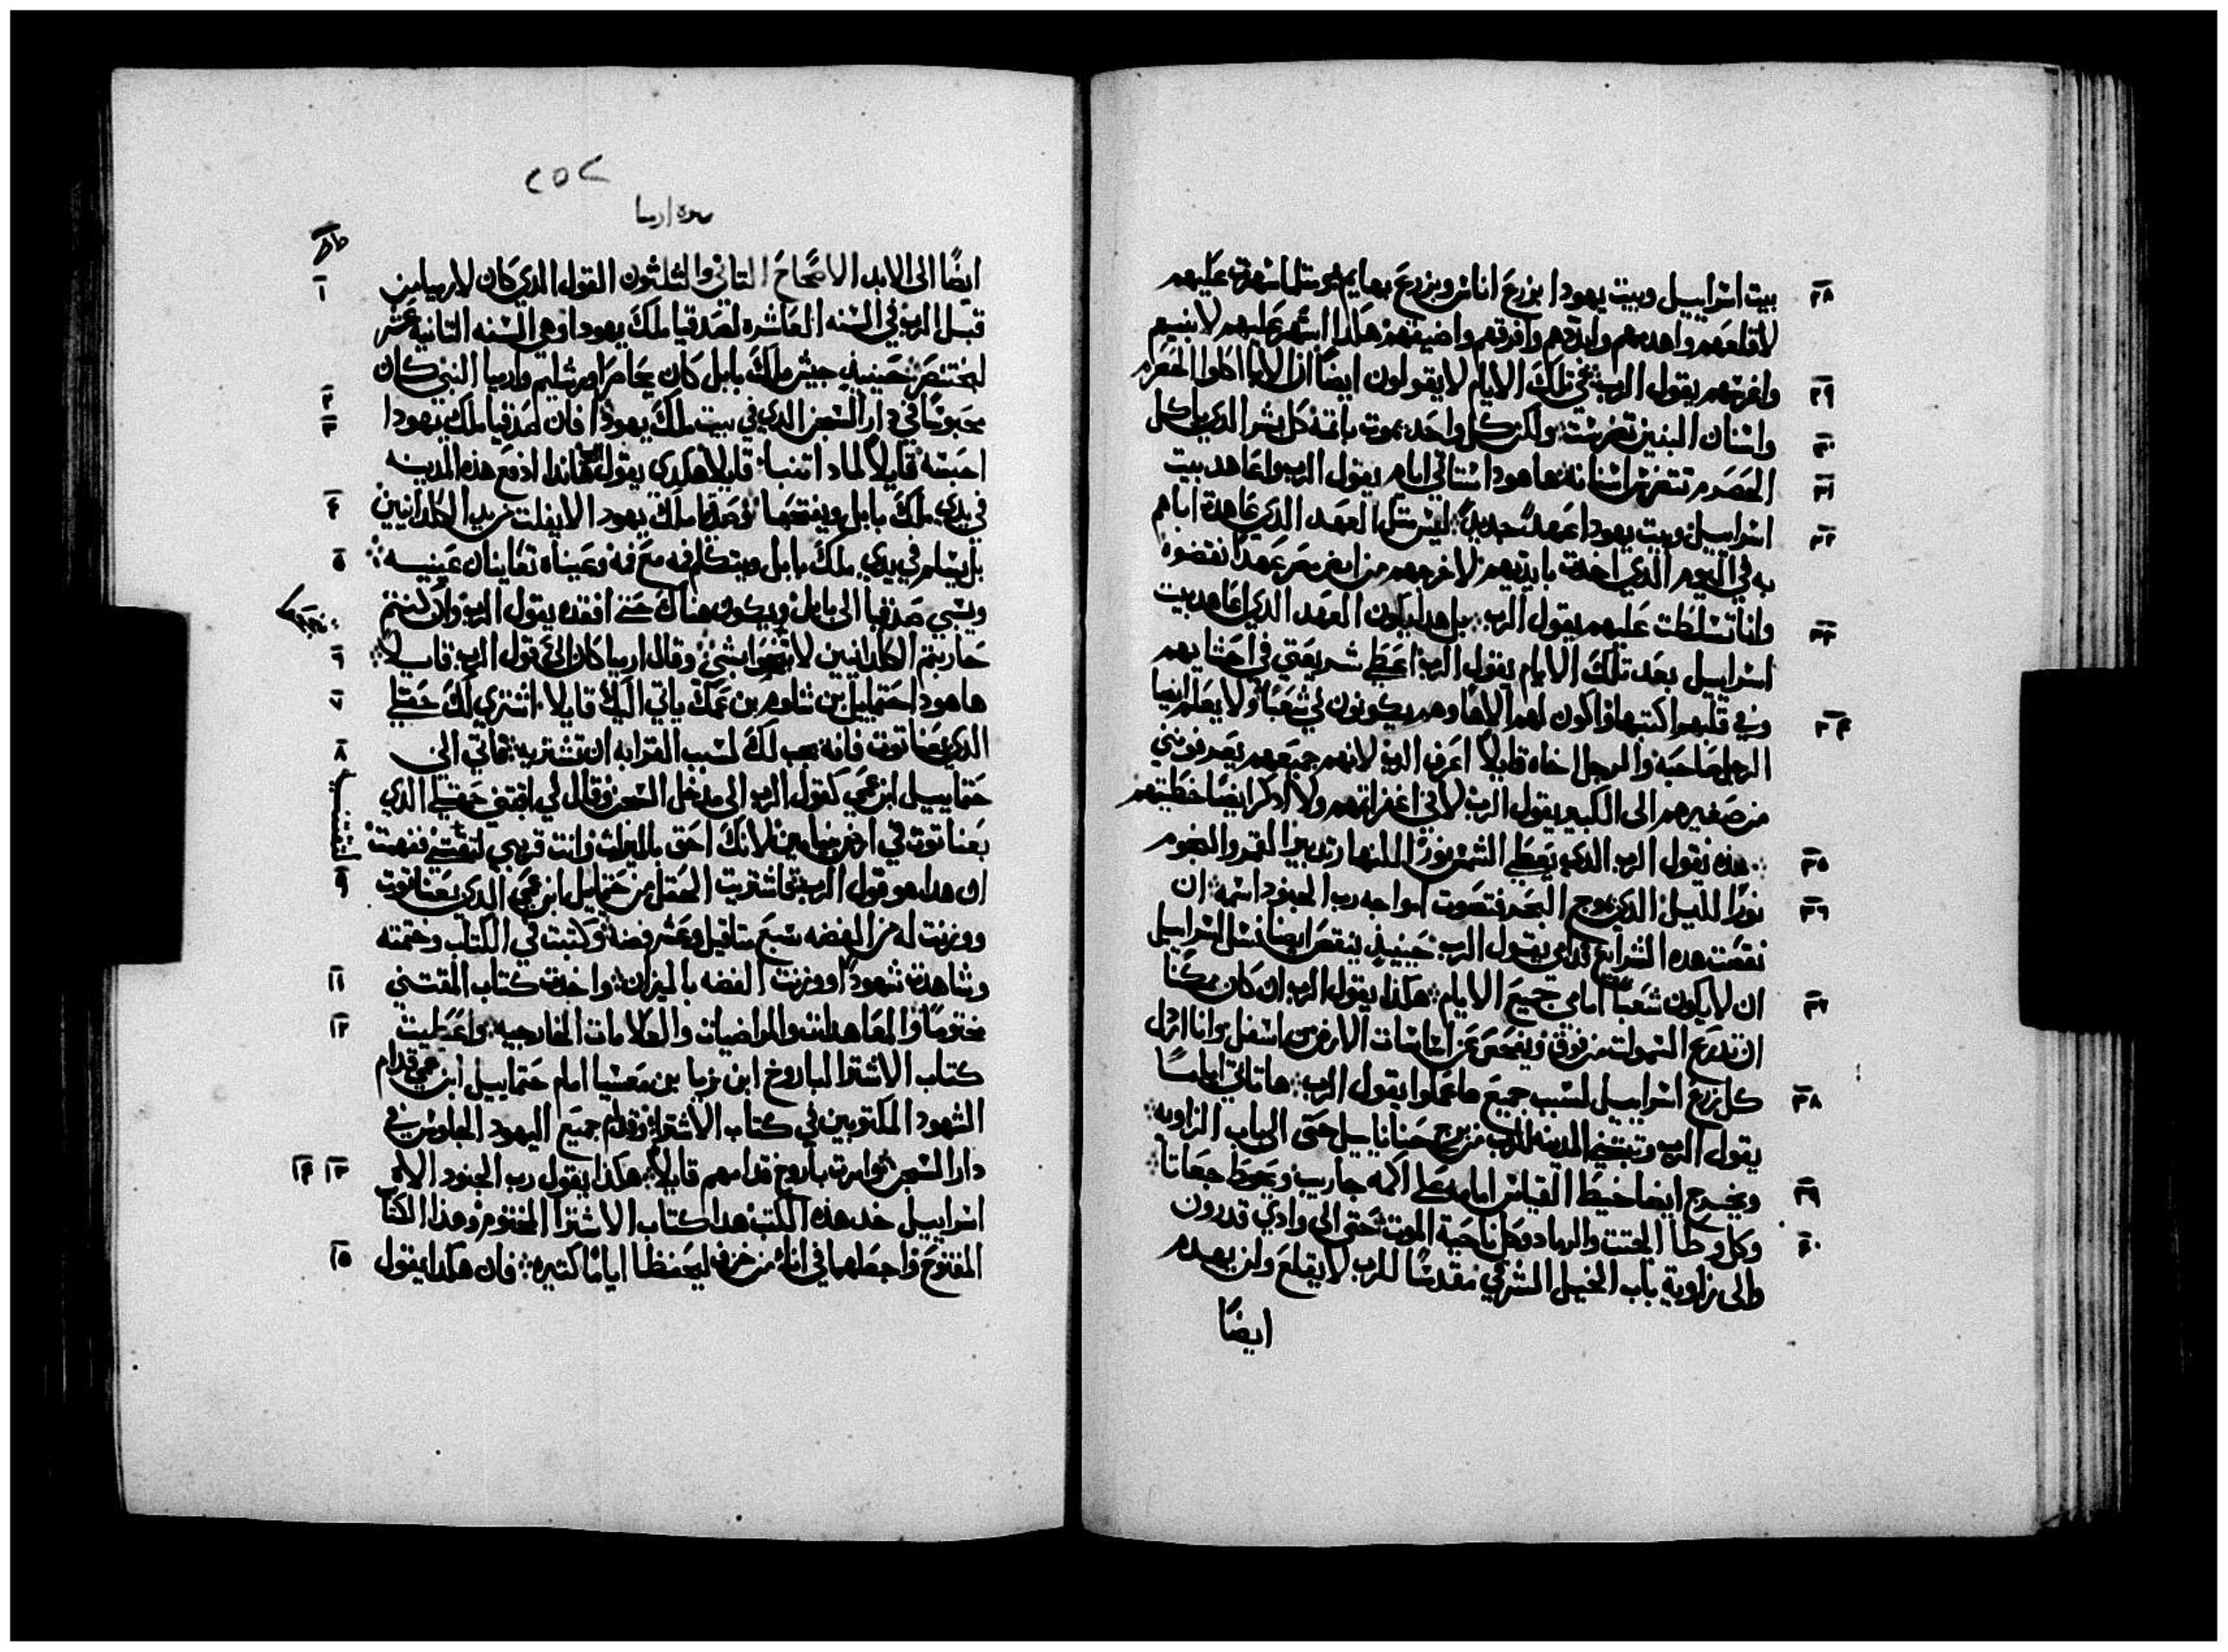 بيت اسراييل وبيت يهودا بزرع اناس وبزرع بهايم مثلما سهرت عليهم ٢٨
لاقلعهم واهدمهم وافرقهم هكدا اسهر عليهم لابنيهم
واغرسهم يقول الرب في تلك الايام لا يقولون ايضًا ان الابا اكلوا الحصرم ٢٩
واسنان البنين تضرست ولكن كل واحد يموت باتمه كل بشر الدي ياكل ٣٠
الحصرم تتضرس اسنانه ها هودا ستاتي ايام يقول الرب واعاهد بيت ٣١
اسراييل وبيت يهودا عهدًا جديدًا ليس مثل العهد الدي عاهدت اباهم ٣٢
به في اليوم الدي اخدت بايديهم لاخرجهم من ارض مصر عهدًا نقضوه
وانا تسلطت عليهم يقول الرب بل هدا يكون العهد الدي اعاهد بيت ٣٣
اسراييل بعد تلك الايام يقول الرب اعطي شريعتي في احشايهم
وفي قلبهم اكتبها واكون لهم الاها وهم يكونون لي شعبًا ولا يعلم ايضا ٣٤
الرجل صاحبه والرجل اخاه قايلا اعرف الرب لانهم جميعهم يعرفونني
من صغيرهم الى الكبير يقول الرب لاني اغفر اتمهم ولا ادكر ايضًا خطيتهم
هده يقول الرب الدي يعطي الشمس نورًا للنهار تدبير القمر والنجوم ٣٥
نورًا لليل الدي البحر فتصوت امواجه رب الجنود اسمه ان ٣٦
نقصت هده الشرايع قدامي يقول الرب حينيدٍ ينقص ايضا نسل اسراييل
ان لا يكون شعبًا امامي جميع الايام هكذا يقول الرب ان كان ممكنا ٣٧
ان تدرع السموات من فوق ويفحص عن اساسات الارض من اسفل وانا ارذل
كل زرع اسراييل لسبب جميع ما عملوا يقول الرب ها تاتي اياما ٣٨
يقول الرب وتبتني المدينه للرب من برج حنانا ييل حتى الى باب الزاويه
ويخرج ايضا خيط القياس امامه على اكمه جاريب ويحوط جعاتا ٣٩
وكل وطا الجتت والرماد وكل ناحية الموت حتى الى وادي قدرون ٤٠
والى زاوية باب الخيل الشرقي مقدسًا للرب لا يقلع ولن يهدم
ايضًا
٢٥٢
ايضًا الى الابد الاصحاح التاني والثلثون القول الدي كان لارميا من ١
قبل الرب في السنه العاشره لصدقيا ملك يهودا وهي السنه التانية عشر
لبختنصر حينيدٍ جيش ملك بابل كان يحاصر اورشليم وارميا النبي كان ٢
محبوسًا في دار السجن الدي في بيت ملك يهودا فان صدقيا ملك يهودا ٣
احبسه قايلا لمادا تتنبا قايلا هكدي يقول الرب هاندا ادفع هده المدينه
في يدي ملك بابل ويفتحها وصدقيا ملك يهودا لا يفلت من يد الكلدانيين ٤
بل يسلم في يدي ملك بابل ويتكلم فمه مع فمه وعيناه تعاينان عينيه ٥
ويسبي صدقيا الى بابل ويكون هناك حتى افقده يقول الرب وان كنتم
حاربتم الكلدانيين لا بشي وقال ارميا كان الي قول الرب قايلا ٦
ها هودا حنماييل بن شلوم بن عمك ياتي اليك قايلا اشتري لك حقلي ٧
الدي بعناتوت فانه يجب لك لسبب القرابه ان تشتريه فاتي الى ٨
حنماييل ابن عمي كقول الرب الى مدخل السجن وقال لي اقتني حقلي الدي
بعناتوت في ارض بنيامين لانك احق بالميراث وانت قريبي لتقتني ففهمت
ان هدا هو قول الرب فاشتريت الحقل من حنماييل ابن عمي الدي بعناتوت ٩
ووزنت له من الفضه سبع متاقيل وعشر فضه وكتبت في الكتاب وختمته
وشاهدت شهودًا ووزنت الفضه بالميزان واخدت كتاب المقتني ١١
مختومًا والمعاهدات والمراضيات والعلامات الخارجيه واعطيت ١٢
كتاب الاشترا لباروخ ابن نريا بن معسيا امام حنماييل ابن عمي قدام
الشهود المكتوبين في كتاب الاشترا وقدام جميع اليهود الجلوس في
دار السجن وامرت باروخ قدامهم قايلا هكذا يقول رب الجنود الاه ١٣ ١٤
اسراييل خد هده الكتب هدا كتاب الاشترا المختوم وهذا الكتاب
المفتوح واجعلهما في انا من خزف ليحفظا ايامًا كتيره فان هكدا يقول ١٥